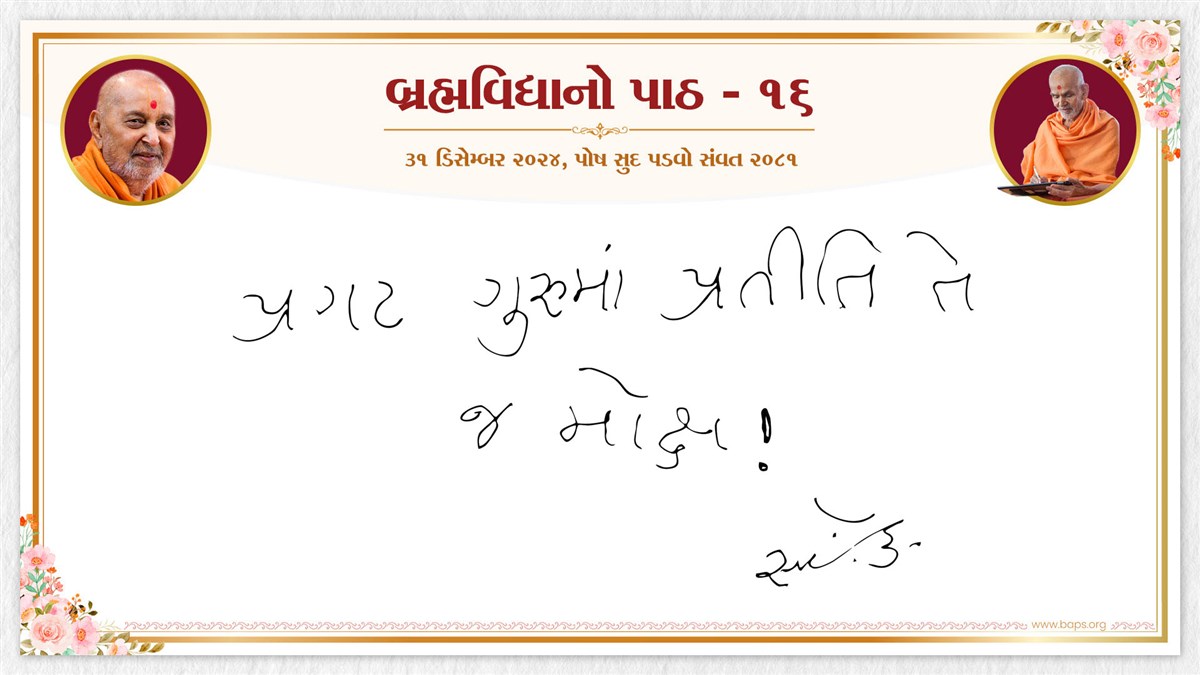 બ્રહ્મવિદ્યાનો પાઠ - ૧૬
૩૧ ડિસેમ્બર ૨૦૨૪, પોષ સુદ પડવો સંવત ૨૦૮૧
પ્રગટ ગુરુમાં પ્રતીતિ તે
જ મોક્ષ!
www.baps.org